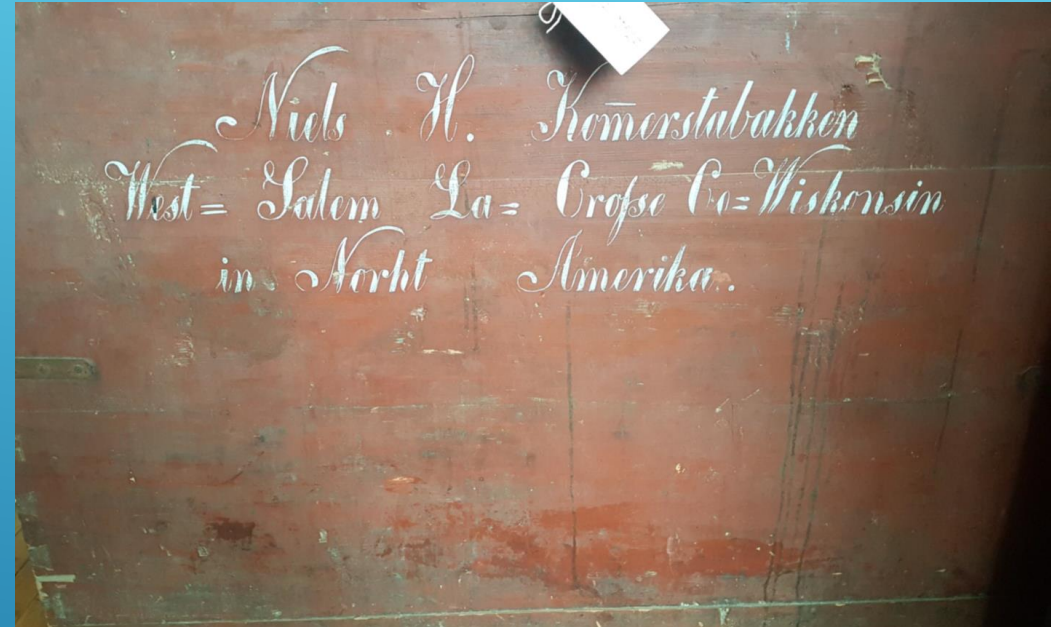 Niels H. Kom̄erstabakken
West= Salem La= Crosse Co=Wiskonsin
in Norht Amerika.